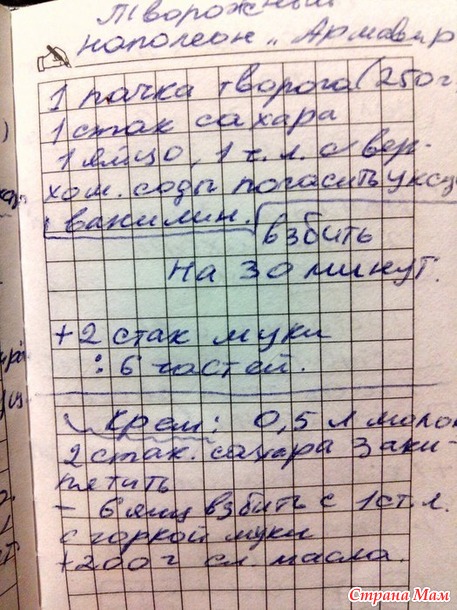 Творожный
наполеон „Армавир
1 пачка творога (250 г.
1 стак сахара
1 яйцо, 1 ч. л. с вер-
хом. соды погасить уксу
ванилин. взбить
на 30 минут.
+ 2 стак муки
: 6 частей.
Крем: 0,5 л моло
2 стак. сахара заки-
пятить
- 6 яиц взбить с 1 ст. л.
с горкой муки
+ 200 г сл. масла.
Страна Мам